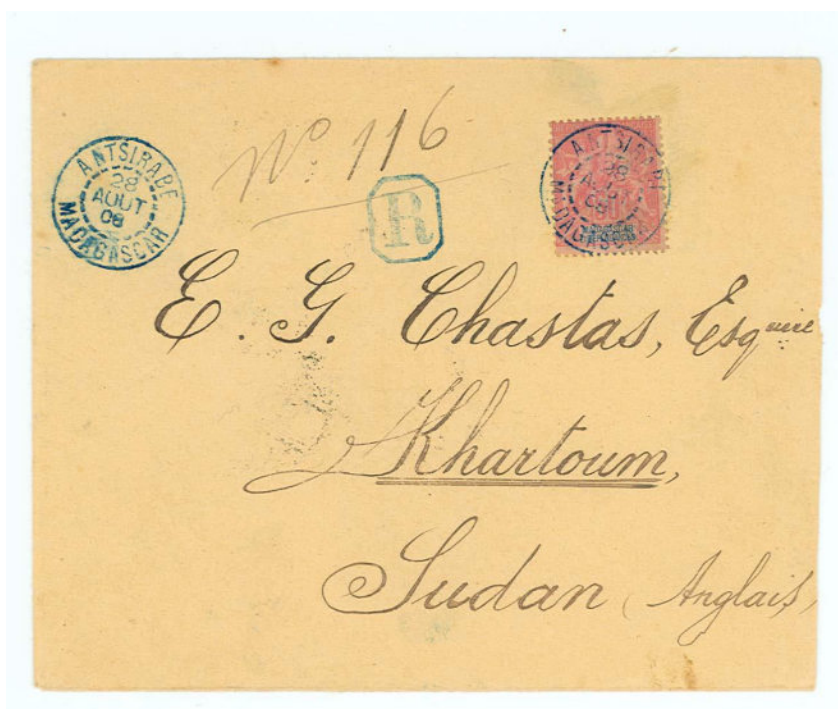 Nº 116
ANTSIRABE
28
AOUT
08
MADAGASCAR
R
ANTSIRABE
28
AOUT
08
MADAGASCAR
E. G. Chastas, Esquire
Khartoum,
Sudan (Anglais)